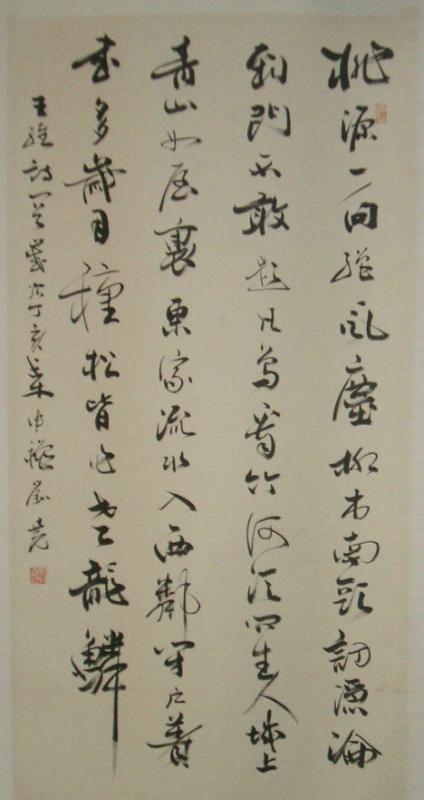 桃源一向絕風塵柳市南頭訪隱淪
到門不敢題凡鳥看竹何須問主人城上
青山如屋裏東家流水入西鄰閉户著
書多歲月種松皆作老龍鱗
王維詩一首歲次丁亥